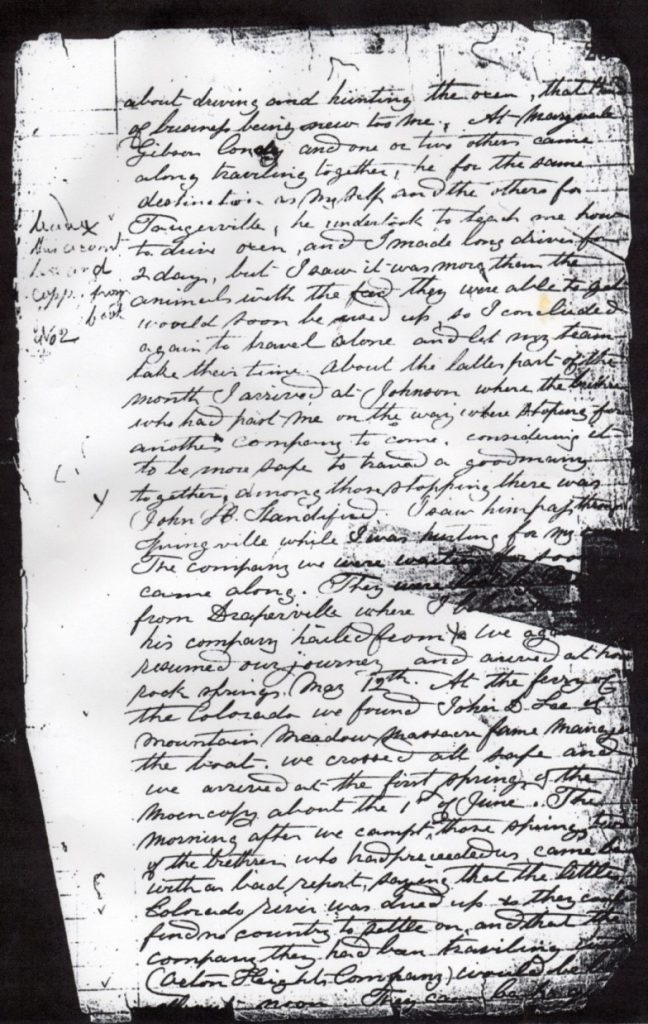 about driving and hunting the oxen, that kind
of business being new too me, At Marysvale
Gibson Condy and one or two others came
along traveling together, he for the same
destination as my self and the others for
Touqerville, he undertook to teach me how
to drive oxen, and I made long drives for
2 days, but I saw it was more than the
animals with the feed they were able to get
would soon be used up, so I concluded
again to travel alone and let my team
take their time. About the latter part of the
month I arrived at Johnson where the brethren
who had past me on the way where stoping for
another company to come. considering it
to be more safe to travel a good many
together, among those stopping there was
John H. Standifird. I saw him pass through
Springville while I was hunting for my
The company we were waiting for soon
came along. They were
from Draperville where I believe
his company hailed from. We again
resumed our journey and arived at
rock springs May 19th. At the ferry of
the Colorado we found John D. Lee of
mountain Meadow Massacre fame manage
the boat. we crossed all safe and
we arrived at the first springs of the
Moencopy about the 1st of June. The
morning after we campt those springs two
of the brethren who had preceeded us came back
with a bad report, saying that the little
Colorado river was dried up so they could
find no country to settle on and that the
company they had ban traviling with
(Acton Heights Company) would be
noon They came back
this account
and
from
book
No 2